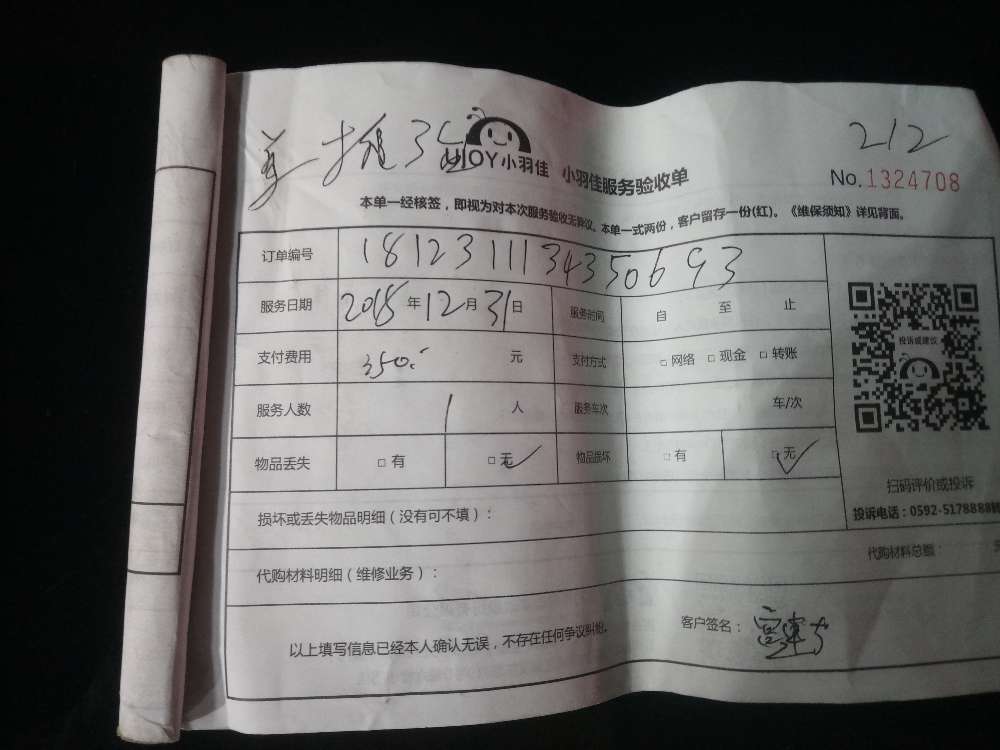 212
UJOY小羽佳 小羽佳服务验收单 No.1324708
本单一经核签，即视为对本次服务验收无异议。本单一式两份，客户留存一份(红)。《维保须知》详见背面。
订单编号 18123111343506693
服务日期 2018年12月31日 服务时间 自 至 止
支付费用 350. 元 支付方式 □网络 □现金 □转账
服务人数 1 人 服务车次 车/次
物品丢失 □有 □无✓ 物品损坏 □有 □无✓
投诉或建议
扫码评价或投诉
投诉电话：0592-5178888转
损坏或丢失物品明细（没有可不填）：
代购材料明细（维修业务）： 代购材料总额：
以上填写信息已经本人确认无误，不存在任何争议纠纷。 客户签名：